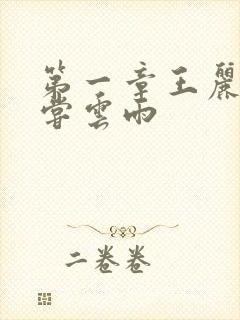 第一章王麗
嘗雲雨
二卷卷